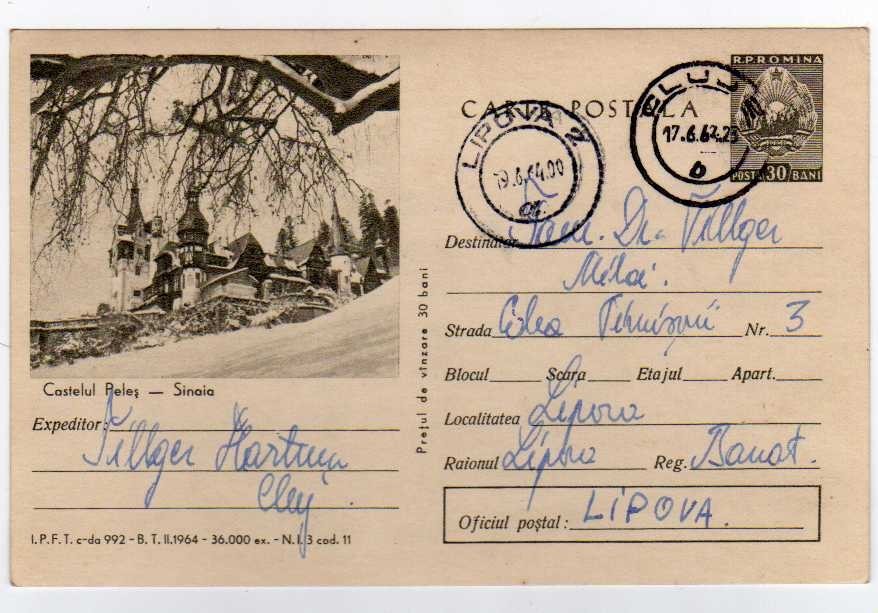 R.P.ROMINA
POSTA 30 BANI
CARTA POSTALA
CLUJ
17.6.64.23
b
LIPOVA 2
19.6.64.00
Castelul Peleș — Sinaia
Expeditor: Tillger Hartmu
Cluj.
I.P.F.T. c-da 992 - B. T. II.1964 - 36.000 ex. - N.I.3 cod. 11
Prețul de vînzare 30 bani
Destinatar Fam. Dr. Tillger
Mihai.
Strada Calea Timișorii Nr. 3
Blocul Scara Etajul Apart.
Localitatea Lipova
Raionul Lipova Reg. Banat.
Oficiul poștal: LIPOVA.